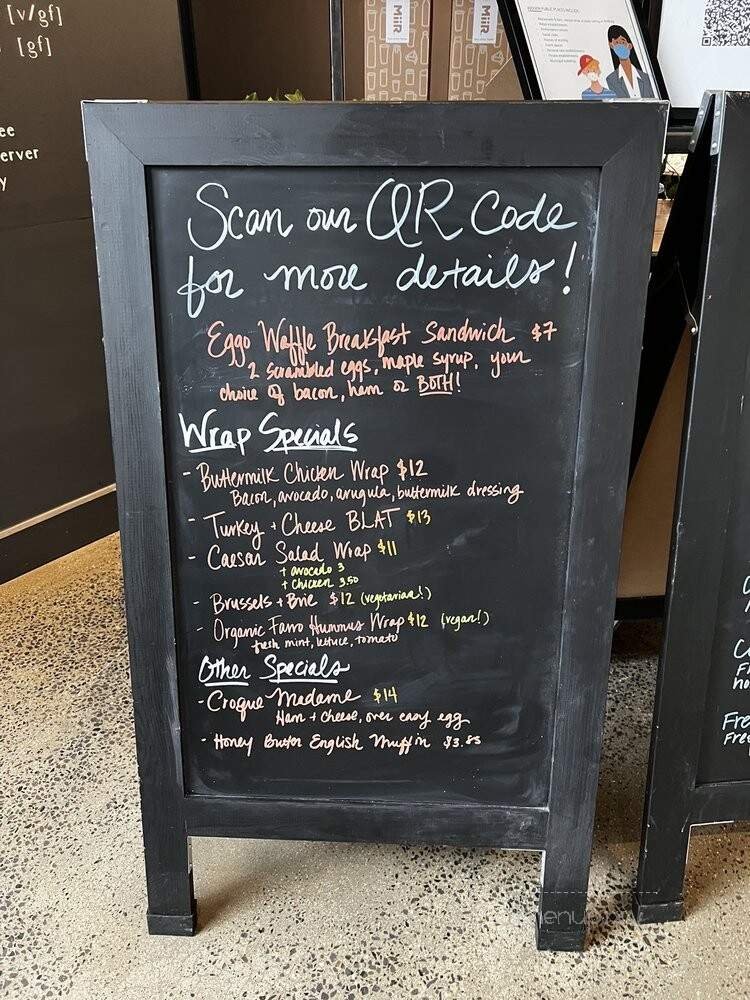 [v/gf]
[gf]
ee
erver
y
MiiR
MiiR
Scan our QR Code
for more details!
Eggo Waffle Breakfast Sandwich $7
2 scrambled eggs, maple syrup, your
choice of bacon, ham or BOTH!
Wrap Specials
- Buttermilk Chicken Wrap $12
Bacon, avocado, arugula, buttermilk dressing
- Turkey + Cheese BLAT $13
- Caesar Salad Wrap $11
+ avocado 3
+ Chicken 3.50
- Brussels + Brie $12 (vegetarian!)
- Organic Farro Hummus Wrap $12 (vegan!)
fresh mint, lettuce, tomato
Other Specials
- Croque Madame $14
Ham + cheese, over easy egg
- Honey Butter English Muffin $3.85
Fre
Free